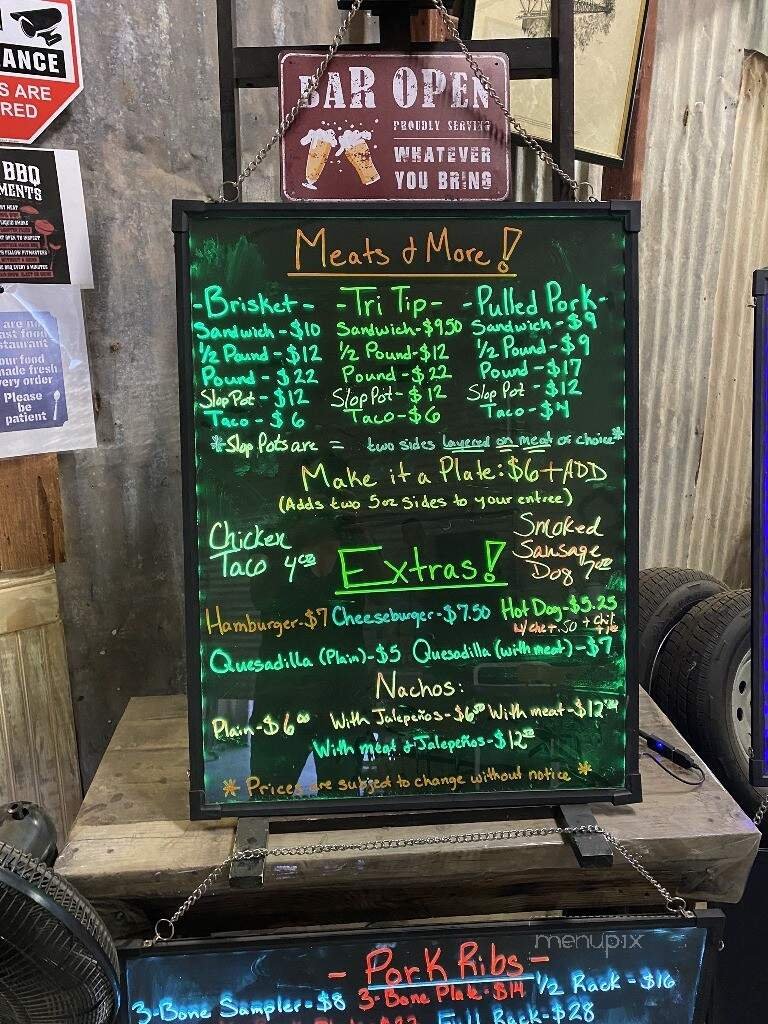 ANCE
S ARE
RED
BBQ
MENTS
are no
ast food
staurant
our food
made fresh
very order
Please
be
patient
BAR OPEN
PROUDLY SERVING
WHATEVER
YOU BRING
Meats & More!
-Brisket- -Tri Tip- -Pulled Pork-
Sandwich-$10 Sandwich-$9.50 Sandwich-$9
1/2 Pound-$12 1/2 Pound-$12 1/2 Pound-$9
Pound-$22 Pound-$22 Pound-$17
Slop Pot-$12 Slop Pot-$12 Slop Pot-$12
Taco-$6 Taco-$6 Taco-$4
*Slop Pots are = two sides layered on meat of choice*
Make it a Plate: $6 + ADD
(Adds two 5oz sides to your entree)
Chicken
Taco 4.00
Smoked
Sausage
Dog 7.00
Extras!
Hamburger-$7 Cheeseburger-$7.50 Hot Dog-$5.25
Quesadilla (Plain)-$5 Quesadilla (with meat)-$7
Nachos:
Plain-$6.00 With Jalepeños-$6.50 With meat-$12
With meat & Jalepeños-$12
* Prices are subject to change without notice *
menupix
-Pork Ribs-
3-Bone Sampler-$8 3-Bone Plate-$14 1/2 Rack-$16
Full Rack-$28